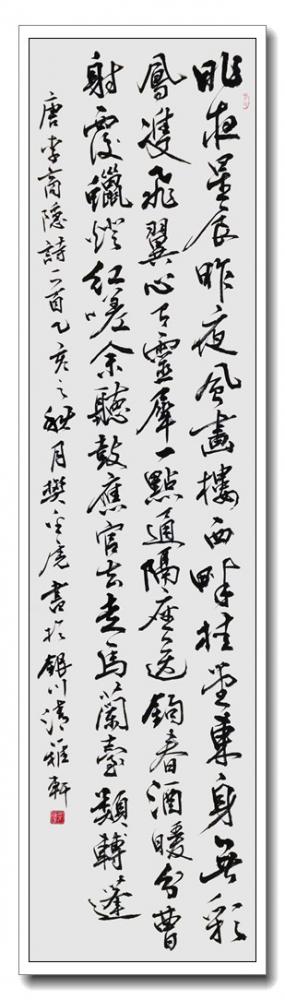 昨夜星辰昨夜風畫樓西畔桂堂東身無彩
鳳雙飛翼心有靈犀一點通隔座送鉤春酒暖分曹
射覆蠟燈紅嗟余聽鼓應官去走馬蘭臺類轉蓬
唐李商隱詩一首乙亥之秋月樊書於銀川清雅軒